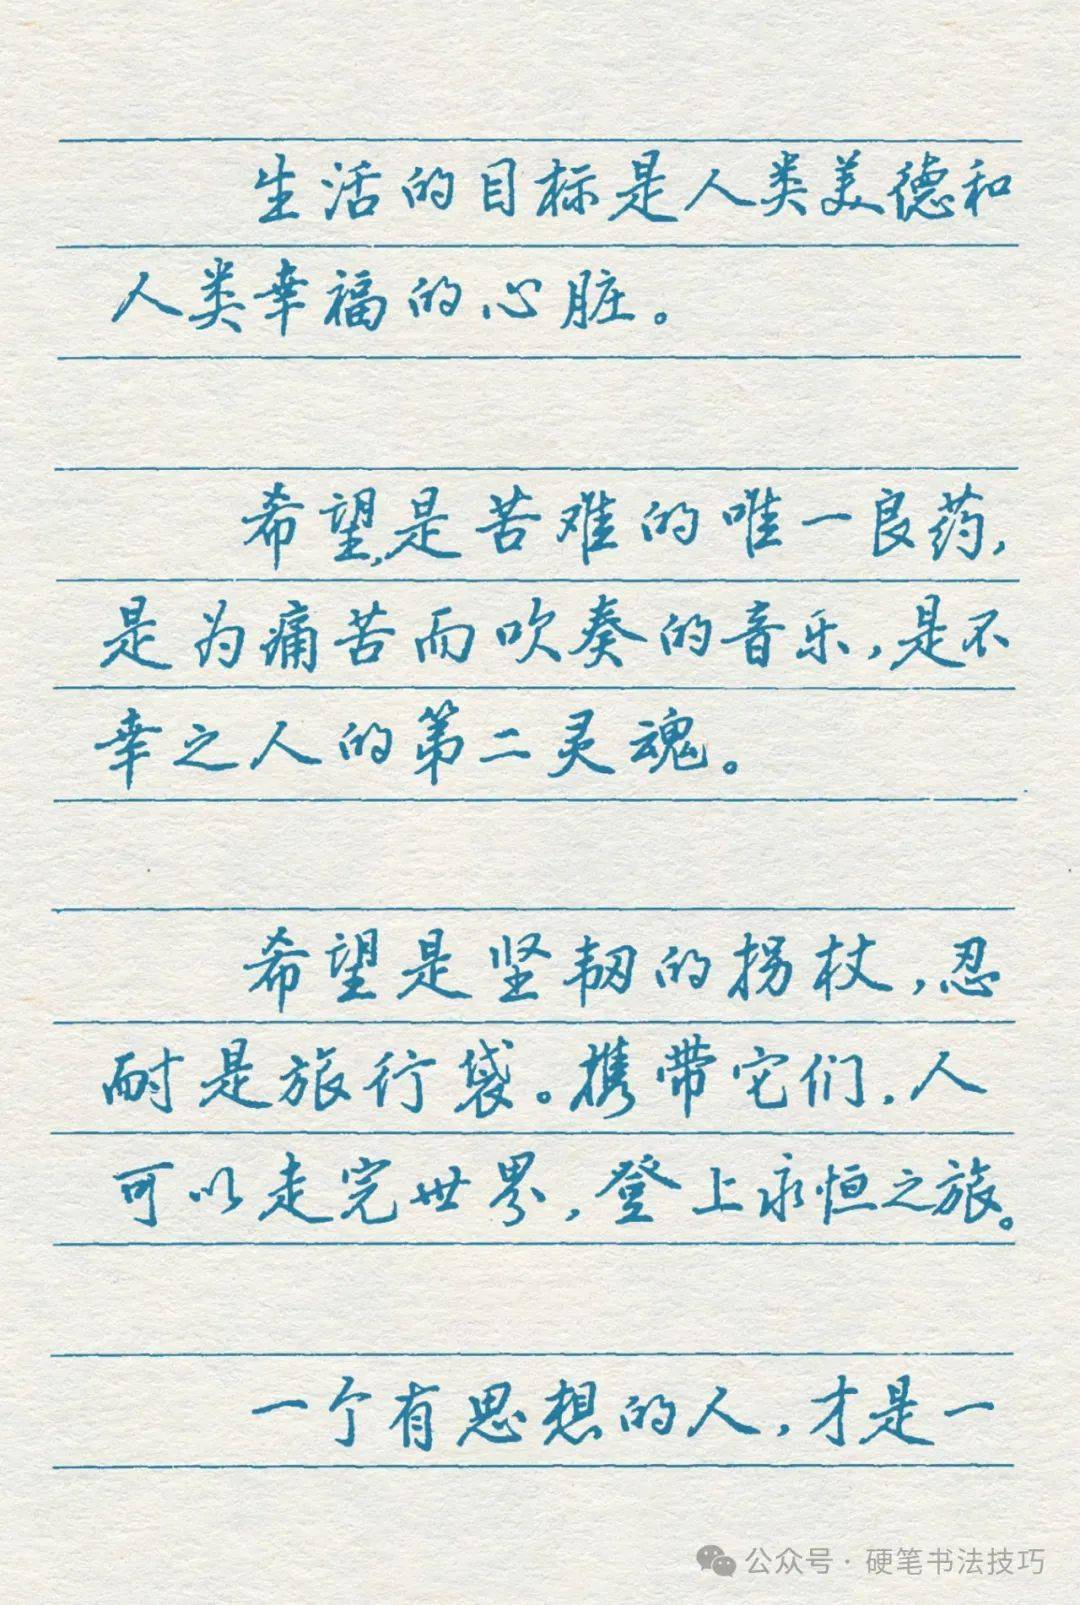 生活的目标是人类美德和
人类幸福的心脏。
希望,是苦难的唯一良药,
是为痛苦而吹奏的音乐,是不
幸之人的第二灵魂。
希望是坚韧的拐杖,忍
耐是旅行袋。携带它们,人
可以走完世界,登上永恒之旅。
一个有思想的人,才是一
公众号·硬笔书法技巧